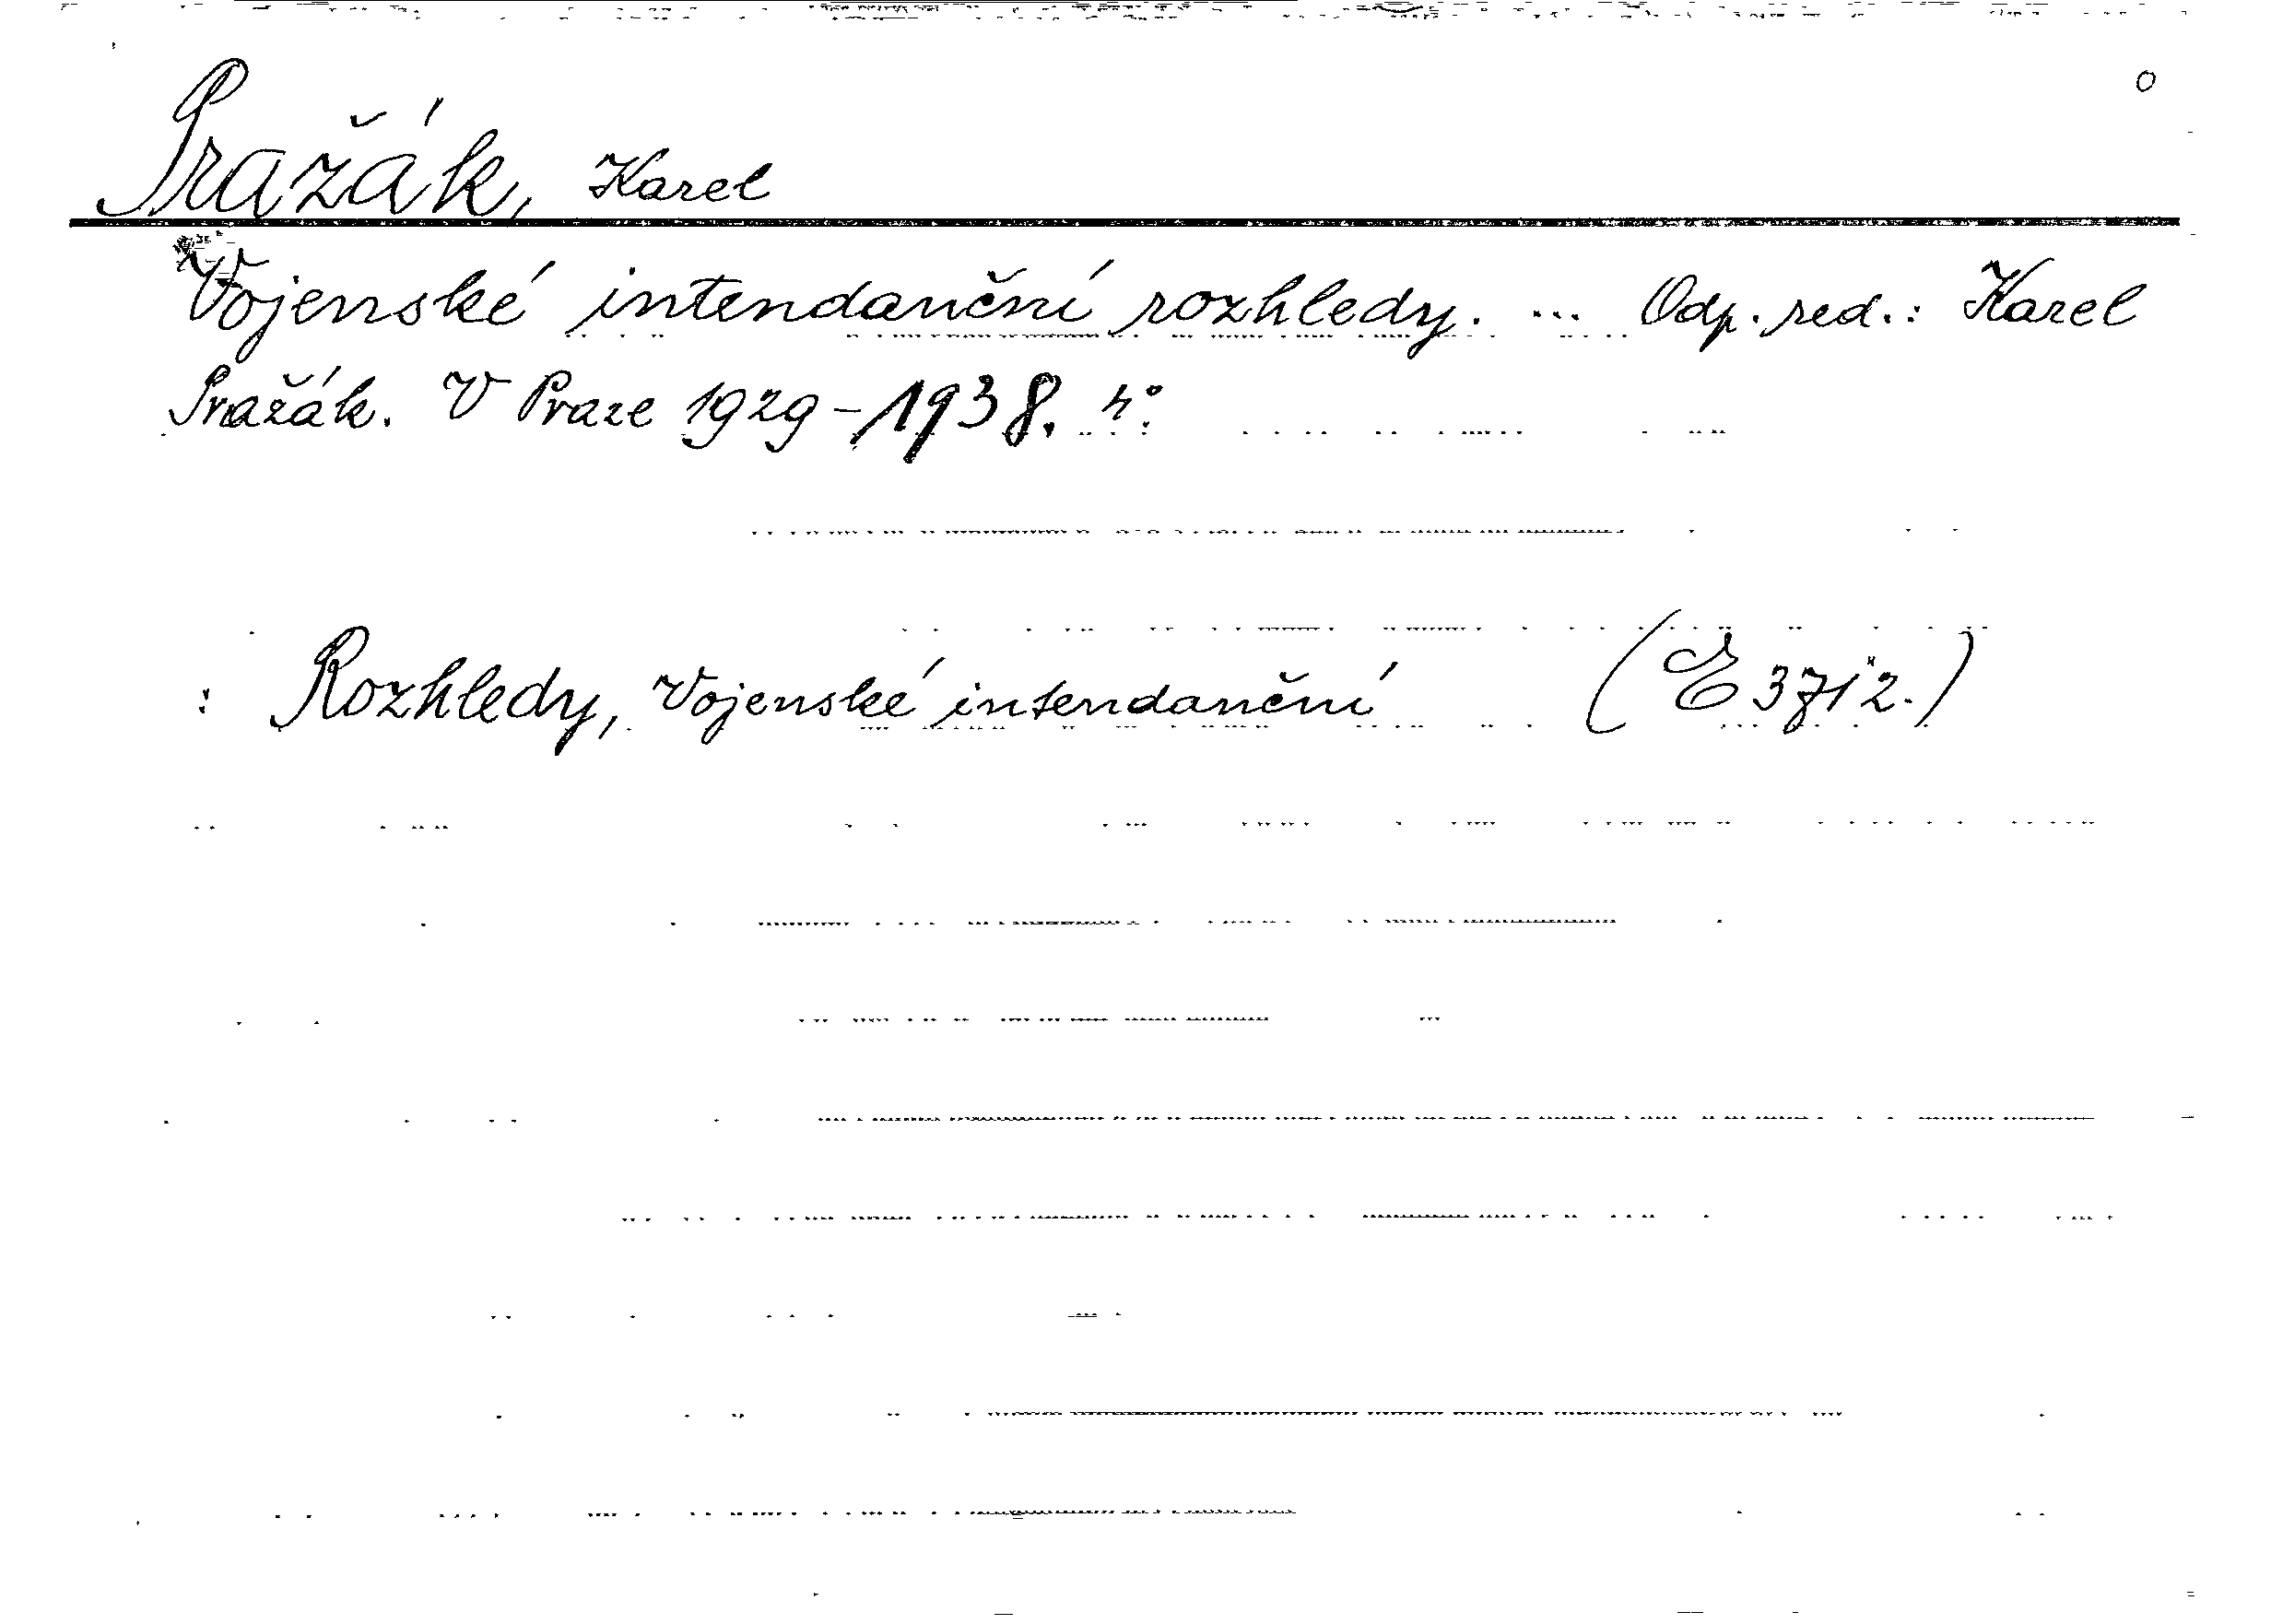 o
Pražák, Karel
Vojenské intendanční rozhledy. ... Odp. red.: Karel
Pražák. V Praze 1929-1938. 4°.
: Rozhledy, Vojenské intendanční (E 3712.)